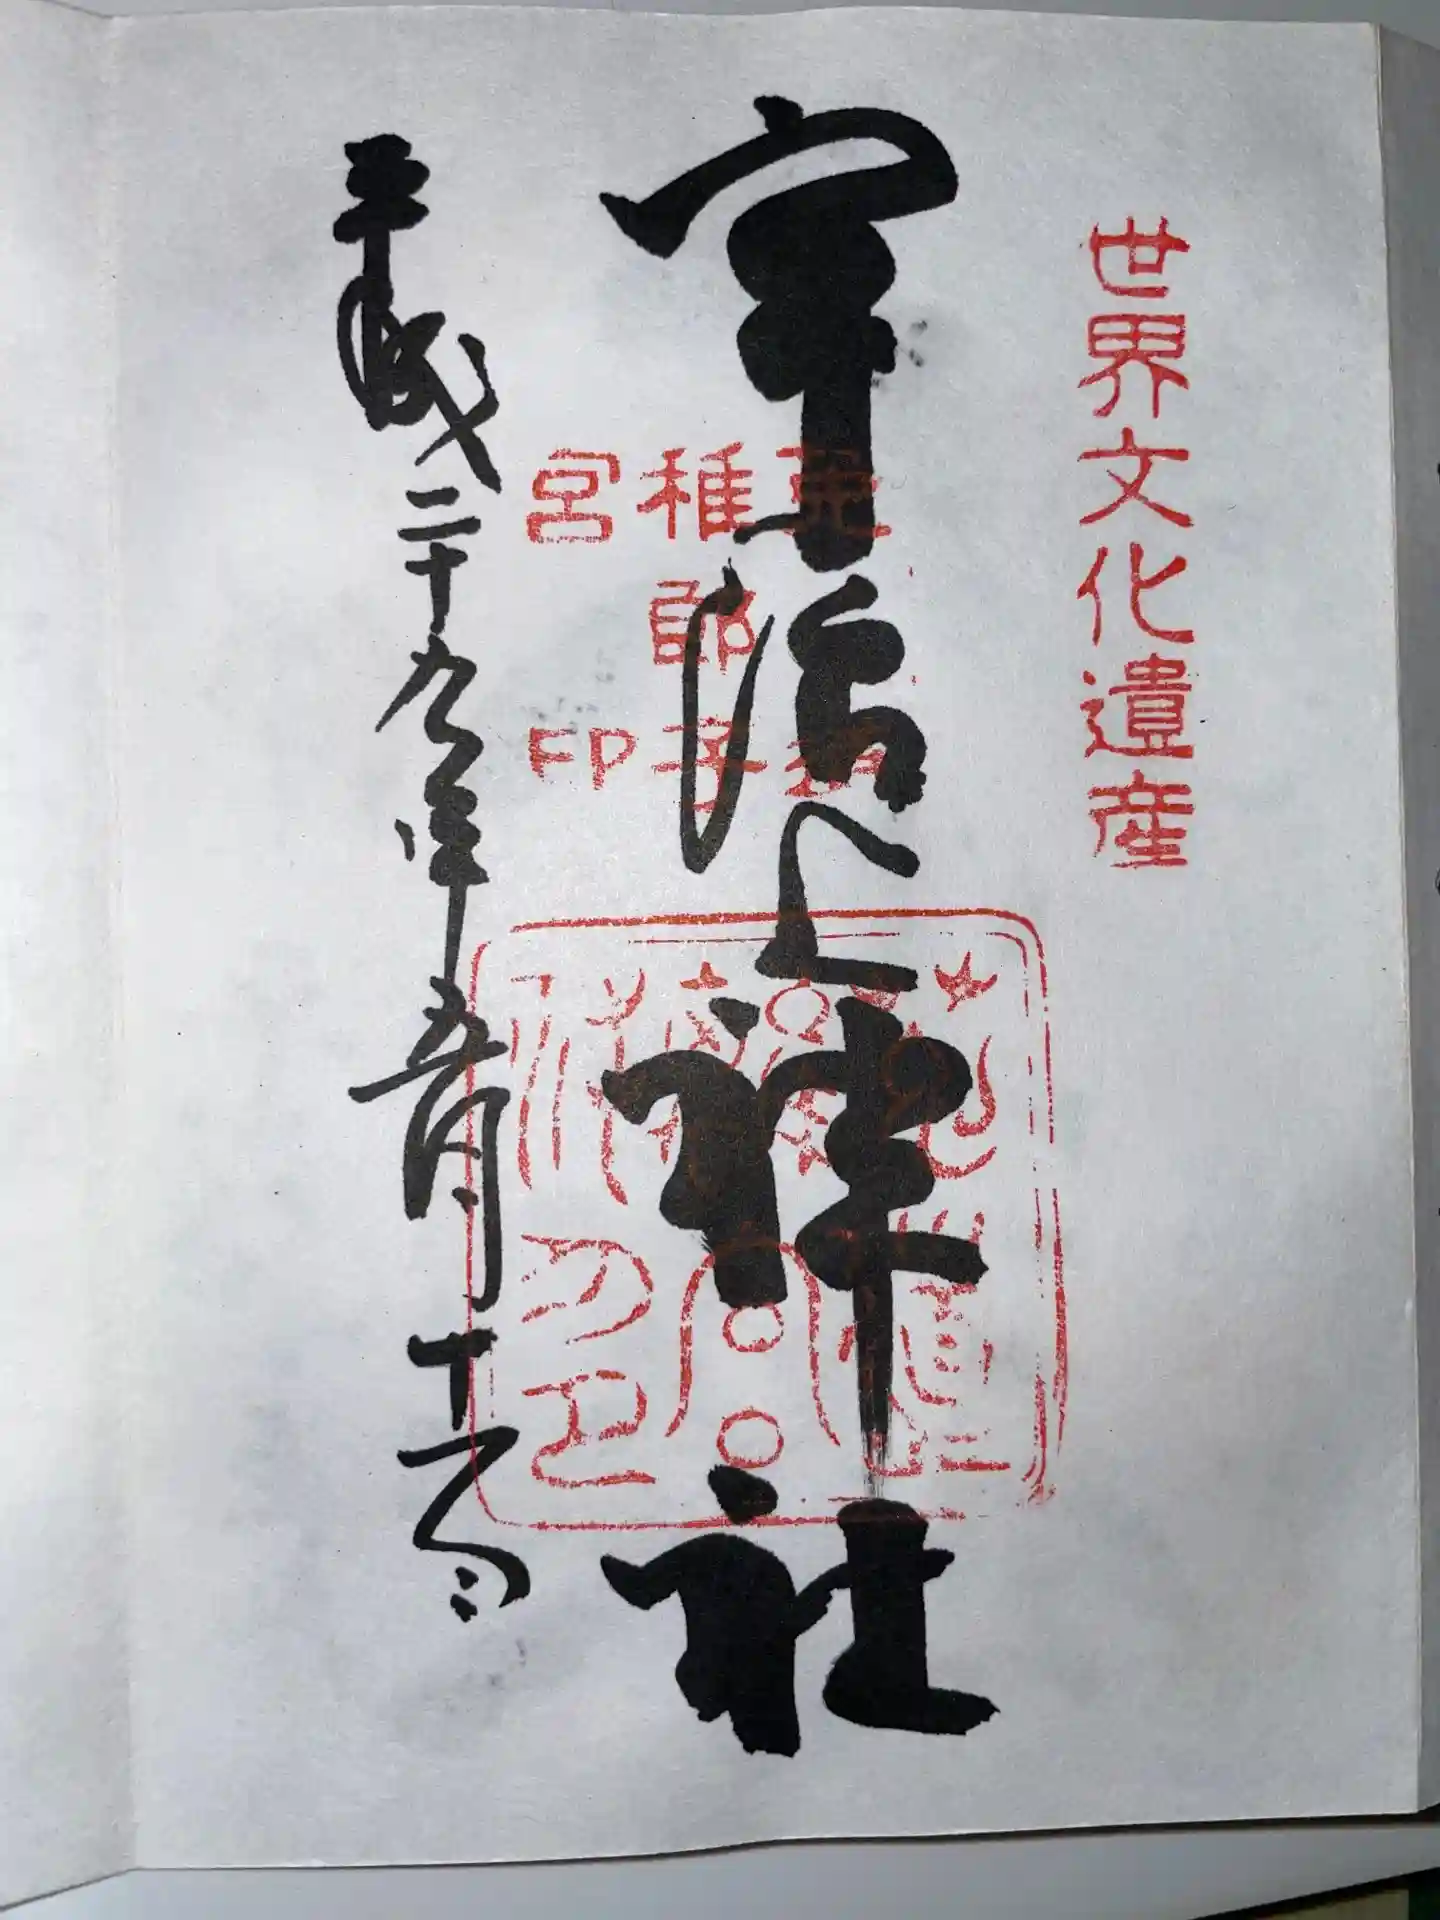 世界文化遺産
宇治上神社
稚郎子
宮印
平成二十九年五月十